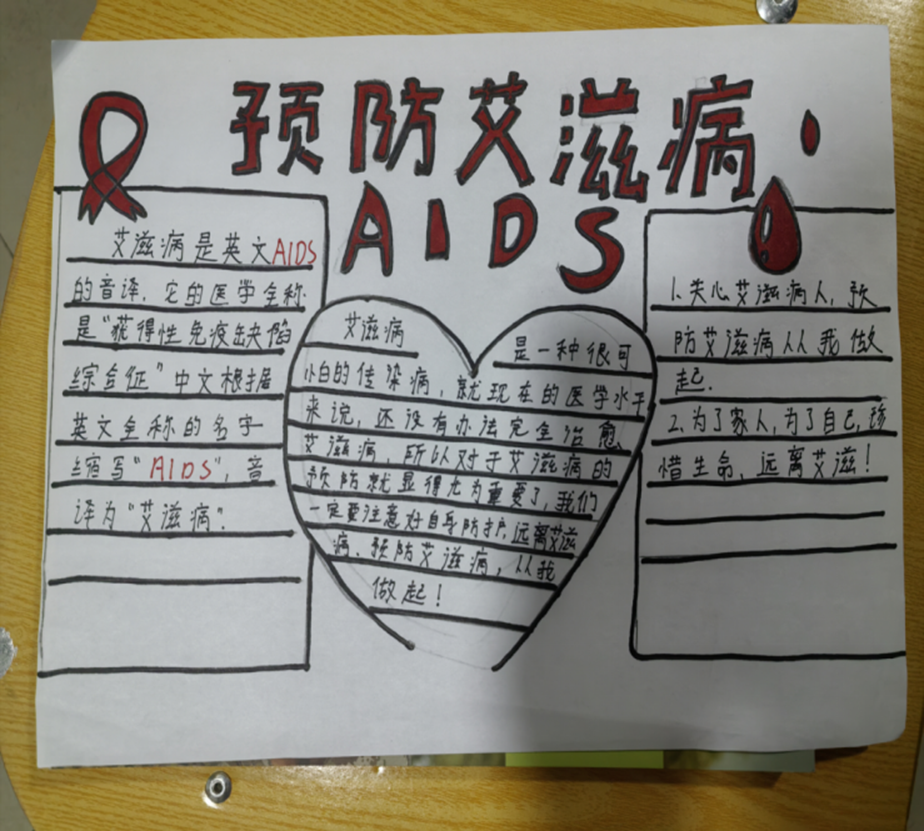 预防艾滋病
AIDS
艾滋病是英文AIDS
的音译,它的医学全称
是“获得性免疫缺陷
综合征”中文根据
英文全称的名字
缩写“AIDS”,音
译为“艾滋病”.
艾滋病 是一种很可
怕的传染病,就现在的医学水平
来说,还没有办法完全治愈
艾滋病,所以对于艾滋病的
预防就显得尤为重要了,我们
一定要注意好自身防护,远离艾滋
病、预防艾滋病,从我
做起!
1.关心艾滋病人,预
防艾滋病从从我做
起.
2.为了家人,为了自己,珍
惜生命,远离艾滋!